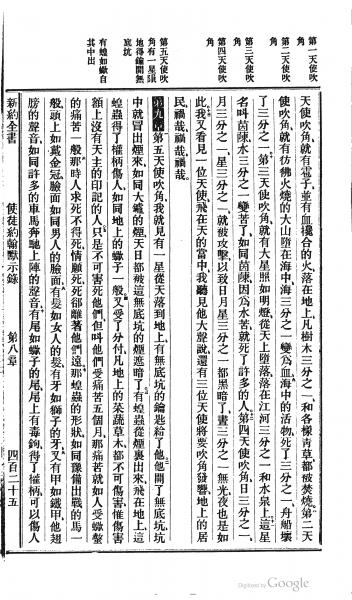 第一天使吹角
第二天使吹角
第三天使吹角
第四天使吹角
第五天使吹角有一星隕地得鑰開無底坑
有蝗如蠍自其中出
天使吹角、就有雹子、並有血攙合的火、落在地上、凡樹木三分之一、和各樣青草、都被焚燒、第二天
使吹角、就有彷彿火燒的大山、墮在海中、海三分之一、變為血、海中的活物、死了三分之一、舟船壞
了三分之一、第三天使吹角、就有大星照如明燈、從天上墮落、落在江河三分之一、和水泉上、這星
名叫茵蔯、水三分之一、變苦了、如同茵蔯、因為水苦、就死了許多的人、第四天使吹角、日三分之一、
月三分之一、星三分之一、就被攻擊、以致日月星三分之一、都黑暗了、晝三分之一無光、夜也是如
此、我又看見一位天使、飛在天的當中、我聽見他大聲說、還有三位天使將要吹角、發響、地上的居
民、禍哉、禍哉、禍哉、
第九章 第五天使吹角、我就見有一星從天落到地上、有無底坑的鑰匙給了他、他開了無底坑、坑
中就冒出煙來、如同大爐的煙、天日都被這無底坑的煙遮暗了、有蝗蟲從煙裏出來、飛在地上、這
蝗蟲得了權柄傷人、如同地上的蠍子一般、又受了分付、凡地上的菜蔬草木、都不可傷害、惟傷害
額上沒有天主的印記的人、只是不可害死他們、但叫他們受痛苦五個月、那痛苦就如人受蠍螫
的痛苦一般、那時人求死不得死、情願死、死卻離着他們、遠那蝗蟲的形狀、如同豫備出戰的馬一
般、頭上如戴金冠、臉面如同男人的臉面、有髮如女人的髮、有牙如獅子的牙、又有甲如鐵甲、他翅
膀的聲音、如同許多的車馬奔馳上陣的聲音、有尾如蠍子的尾、尾上有毒鉤、得了權柄可以傷人
新約全書 使徒約翰默示錄 第八章 四百二十五
Digitized by Google